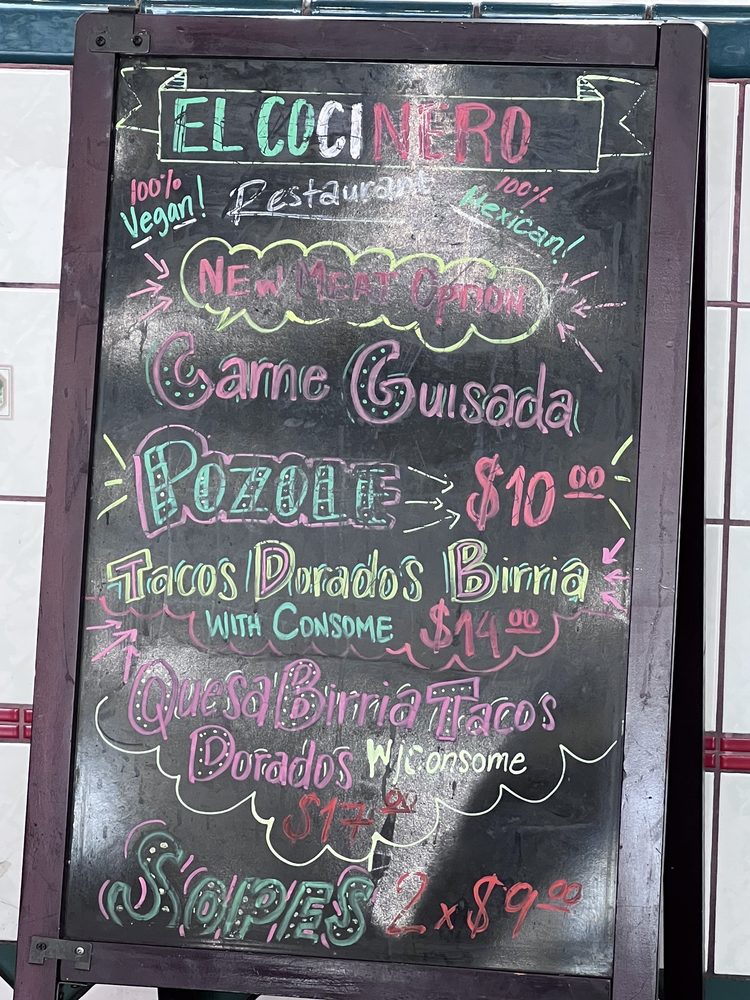 EL COCINERO
100% Vegan!
Restaurant
100% Mexican!
NEW MEAT OPTION
Carne Guisada
POZOLE $10.00
Tacos Dorados Birria
WITH CONSOME $14.00
QuesaBirria Tacos
Dorados W/Consome
$17.00
SOPES 2 x $9.00